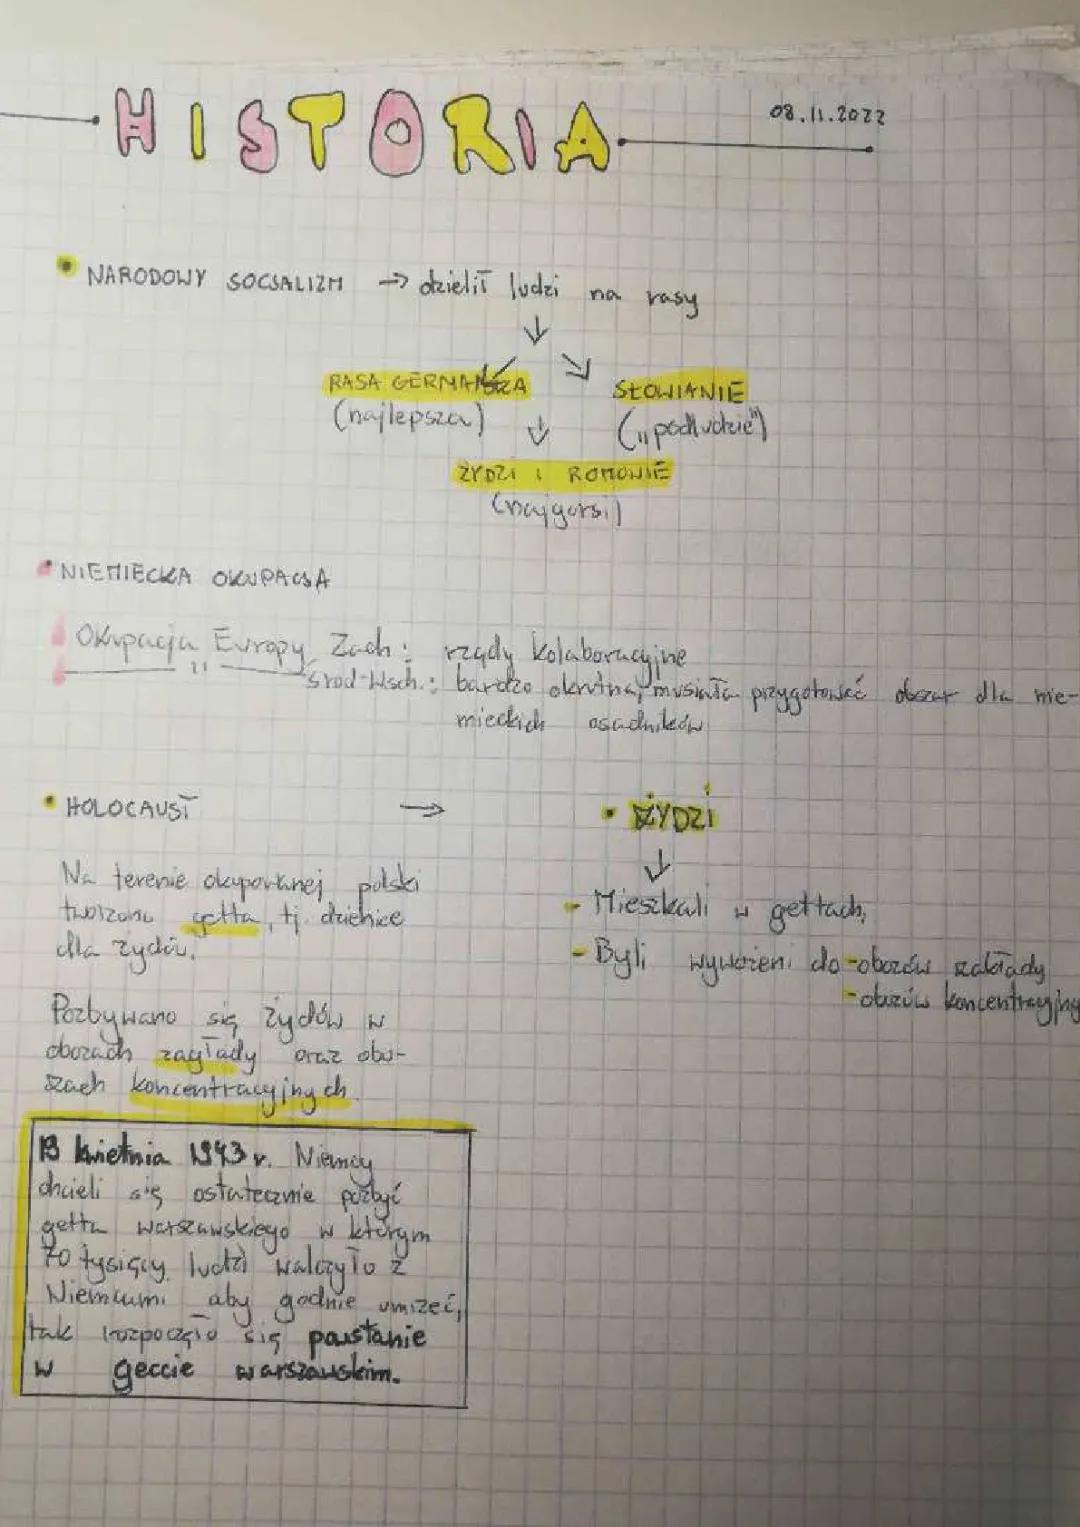 HISTORIA
08.11.2022
• NARODOWY SOCJALIZM → dzielił ludzi na rasy
RASA GERMAŃSKA
SŁOWIANIE
(najlepsza)
("podludzie")
ŻYDZI I ROMOWIE
(najgorsi)
• NIEMIECKA OKUPACJA
Okupacja Europy Zach: rządy kolaboracyjne
— 11 — Środ-Wsch.: bardzo okrutna, musiała przygotować obszar dla nie-
mieckich osadników
• HOLOCAUST →
• ŻYDZI
Na terenie okupowanej polski
tworzono getta, tj. dzielnice
dla żydów.
- Mieszkali w gettach,
- Byli wywożeni do - obozów zakłady
- obozów koncentracyjny
Pozbywano się żydów w
obozach zagłady oraz obo-
zach koncentracyjnych
kwietnia 1943 r. Niemcy
chcieli się ostatecznie pozbyć
getta warszawskiego w którym
70 tysięcy ludzi walczyło z
Niemcami aby godnie umrzeć,
tak rozpoczęło się powstanie
w geccie warszawskim.